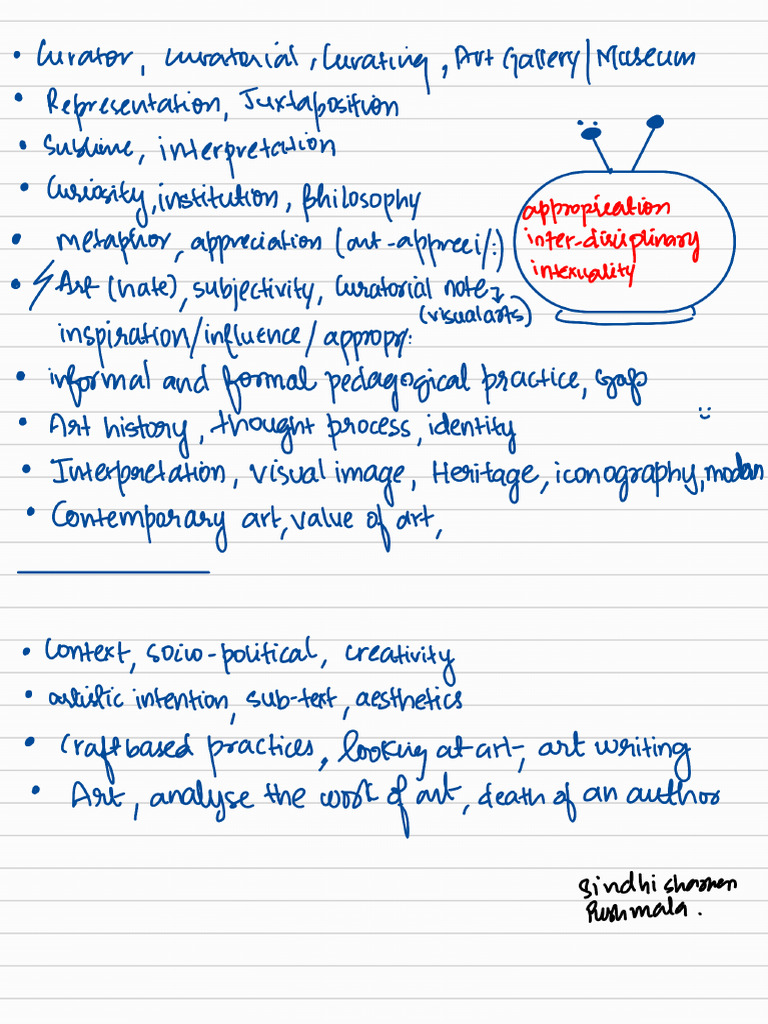 • Curator, curatorial, Curating, Art Gallery/Museum
• Representation, Juxtaposition
• Sublime, interpretation
• Curiosity, institution, philosophy
• metaphor, appreciation (art-appreci/:)
appropication
inter-disciplinary
intexuality
• Art (hate), subjectivity, Curatorial note
(visual arts)
inspiration/influence/appropr:
• informal and formal pedagogical practice, Gap
• Art history, thought process, identity
• Interpretation, visual image, Heritage, iconography, modern
• Contemporary art, value of art,
• Context, socio-political, creativity
• artistic intention, sub-text, aesthetics
• Craft based practices, looking at art, art writing
• Art, analyse the work of art, death of an author